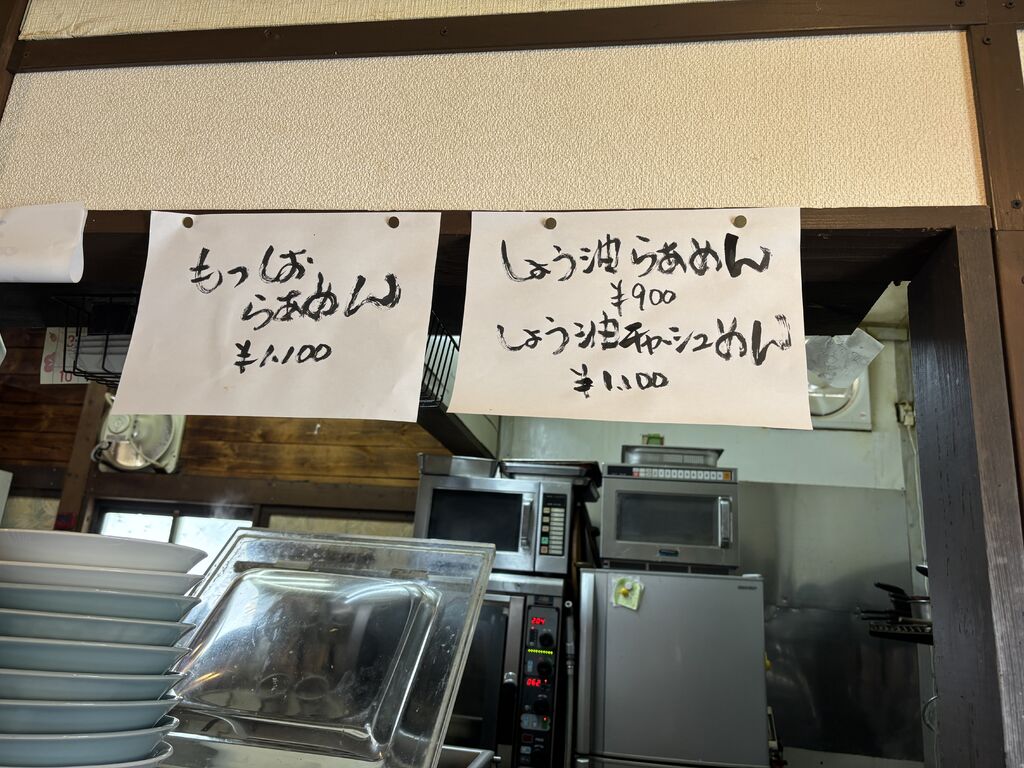 もっしお
らあめん
¥1,100
しょう油らあめん
¥900
しょう油チャーシューめん
¥1,100